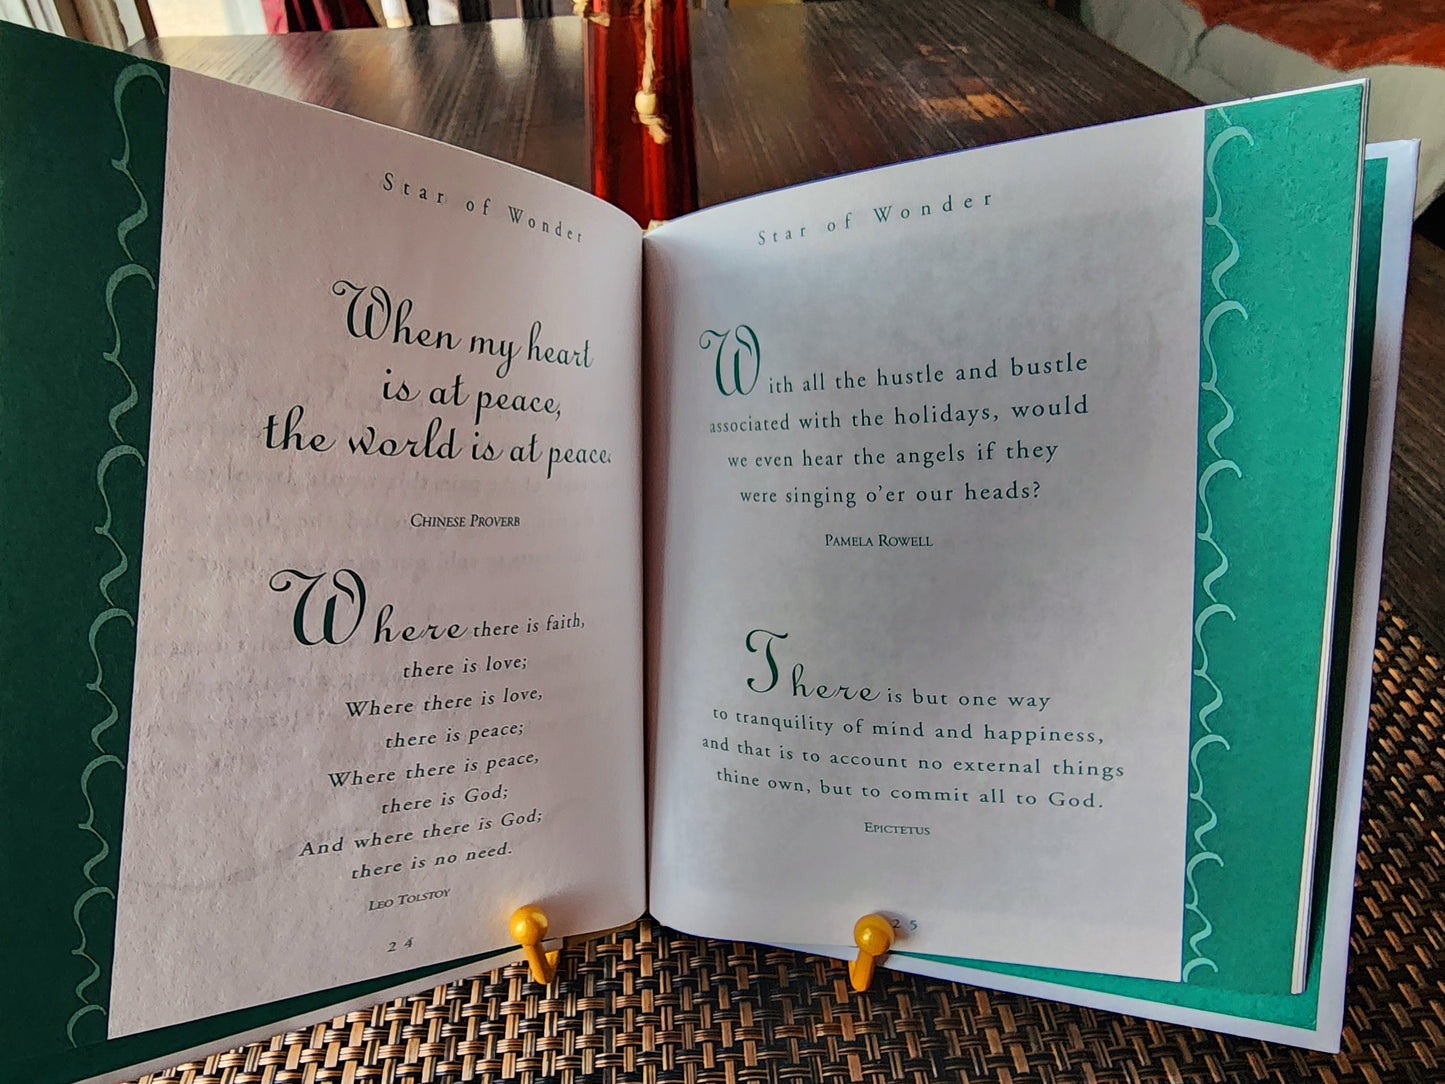 Star of Wonder
When my heart
is at peace,
the world is at peace.
CHINESE PROVERB
Where there is faith,
there is love;
Where there is love,
there is peace;
Where there is peace,
there is God;
And where there is God;
there is no need.
LEO TOLSTOY
24
Star of Wonder
With all the hustle and bustle
associated with the holidays, would
we even hear the angels if they
were singing o'er our heads?
PAMELA ROWELL
There is but one way
to tranquility of mind and happiness,
and that is to account no external things
thine own, but to commit all to God.
EPICTETUS
25